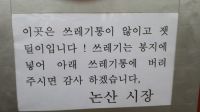 이곳은 쓰레기통이 않이고 잿
털이입니다! 쓰레기는 봉지에
넣어 아래 쓰레기통에 버려
주시면 감사 하겠습니다.
논산 시장